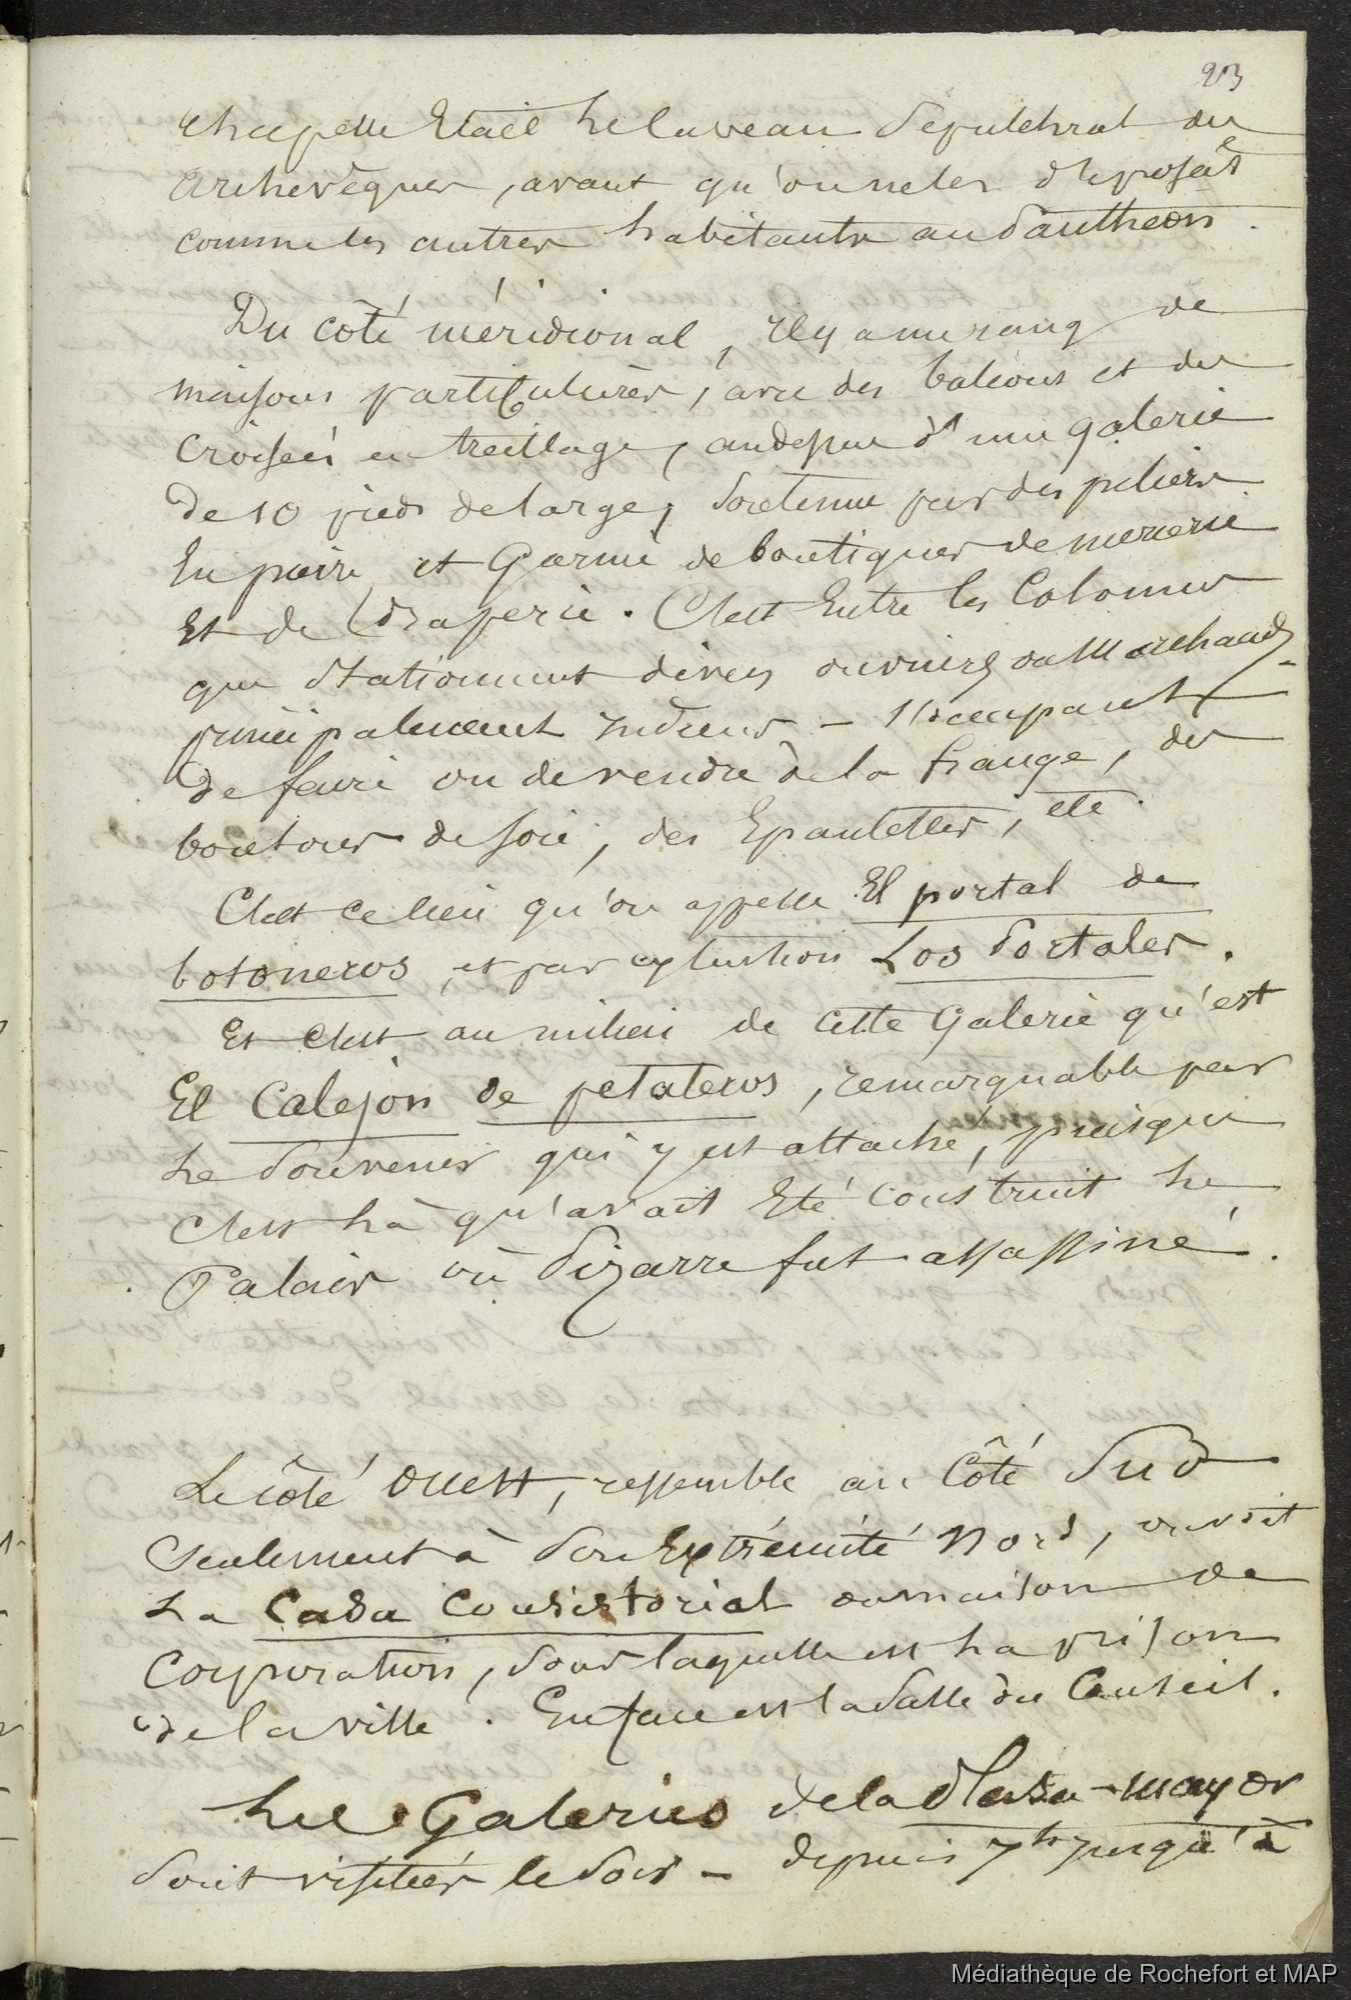 23
chapelle Etait le caveau sépulchral des
archevêques, avant qu'on ne les déposât
comme les autres habitants au Panthéon.
Du côté méridional, il y a un rang de
maisons particulières, avec des balcons et des
croisées en treillage, au dessus d'une galerie
de 10 pieds de large, soutenue par des piliers
En pierre et Garnie de boutiques de mercerie
Et de Draperie. C'est Entre les Colonnes
que stationnent divers ouvriers ou Marchands
principalement indiens - s'occupant
de faire ou de vendre de la frange, des
boutons de soie, des Epaulettes, etc.
C'est ce lieu qu'on appelle El portal de
botoneros, et par exclusion Los Portales.
Et c'est au milieu de cette Galerie qu'est
El Calejon de petateros, remarquable par
le souvenir qui y est attaché, puisque
C'est là qu'avait Eté construit le
Palais où Pizarre fut assassiné.
Le côté ouest, ressemble au Côté Sud
seulement à son Extrémité Nord, on voit
La Casa Consistorial ou maison de
Corporation, sous laquelle est la prison
de la ville. En face est la salle du Conseil.
Les Galeries de la Plasa-mayor
sont visitées le soir - depuis 7h jusqu'à
Médiathèque de Rochefort et MAP